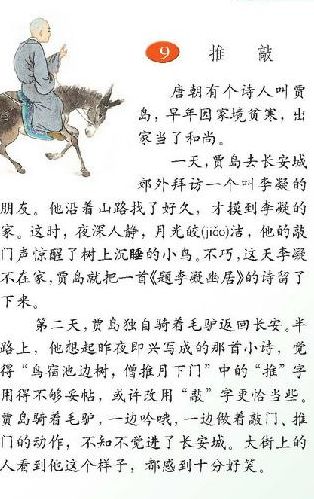 9 推 敲
唐朝有个诗人叫贾
岛，早年因家境贫寒，出
家当了和尚。
一天，贾岛去长安城
郊外拜访一个叫李凝的
朋友。他沿着山路找了好久，才摸到李凝的
家。这时，夜深人静，月光皎(jiǎo)洁，他的敲
门声惊醒了树上沉睡的小鸟。不巧，这天李凝
不在家，贾岛就把一首《题李凝幽居》的诗留了
下来。
第二天，贾岛独自骑着毛驴返回长安。半
路上，他想起昨夜即兴写成的那首小诗，觉
得“鸟宿池边树，僧推月下门”中的“推”字
用得不够妥帖，或许改用“敲”字更恰当些。
贾岛骑着毛驴，一边吟哦，一边做着敲门、推
门的动作，不知不觉进了长安城。大街上的
人看到他这个样子，都感到十分好笑。